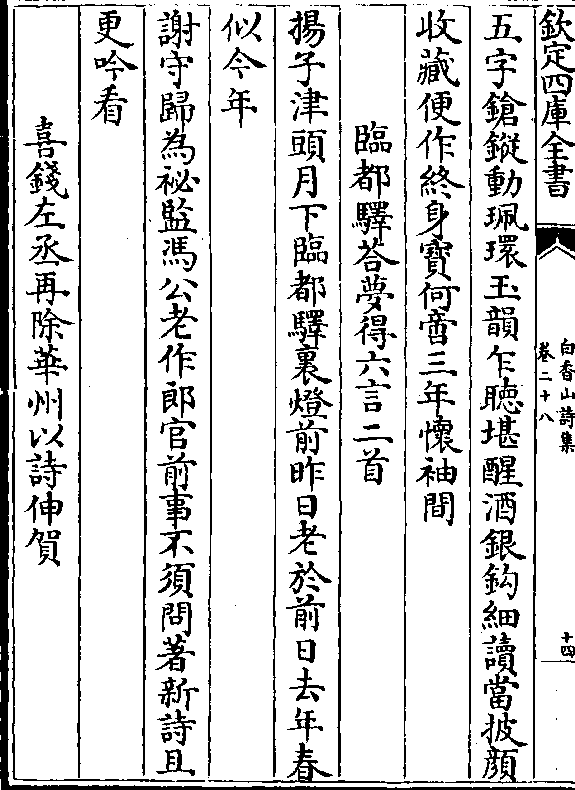 欽定四庫全書
白香山詩集
卷二十八
十四
五字鎗鏦動珮環玉韻乍聴堪醒酒銀鈎細讀當披顔
收藏便作終身寶何啻三年懷袖間
臨都驛荅夢得六言二首
揚子津頭月下臨都驛裏燈前昨日老於前日去年春
似今年
謝守歸為祕監馮公老作郎官前事不須問著新詩且
更吟看
喜錢左丞再除華州以詩伸賀